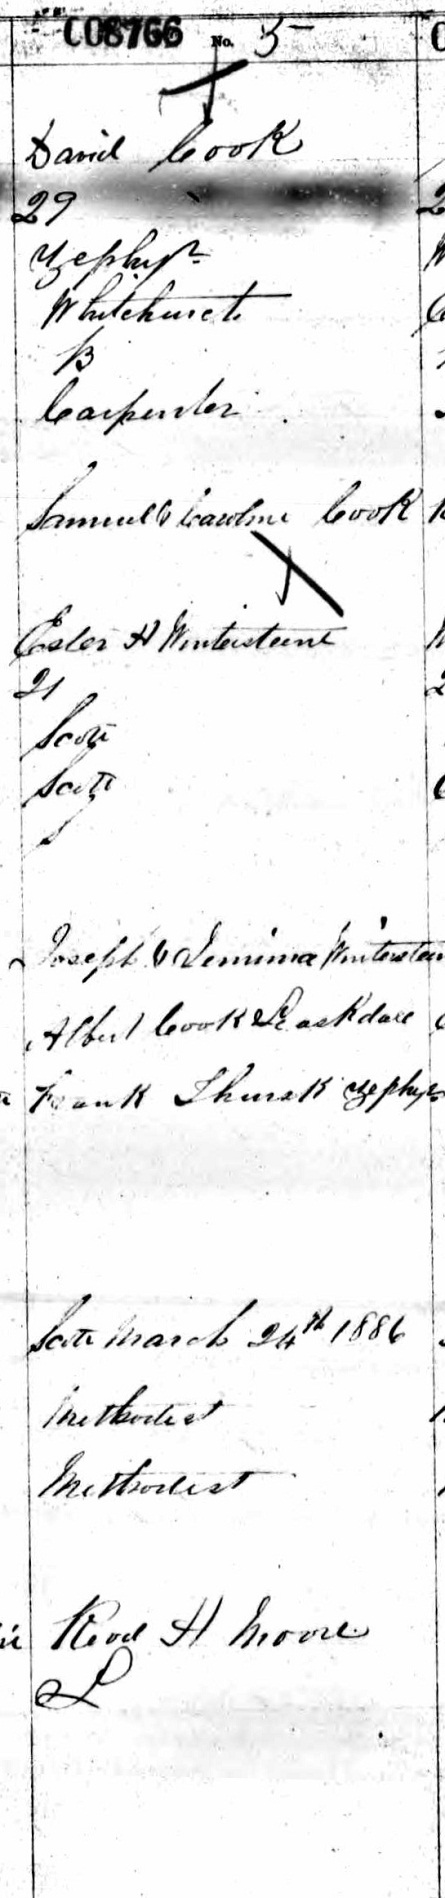 C08766 No. 5
David Cook
29
Zephyr
Whitchurch
B
Carpenter
Samuel & Caroline Cook
Ester H Wintersteine
21
Scott
Scott
S
Joseph & Jemima Winterstein
Albert Cook Leaskdale
Frank Thirsk Zephyr
Scott March 24th 1886
Methodist
Methodist
Revd H Moore
L